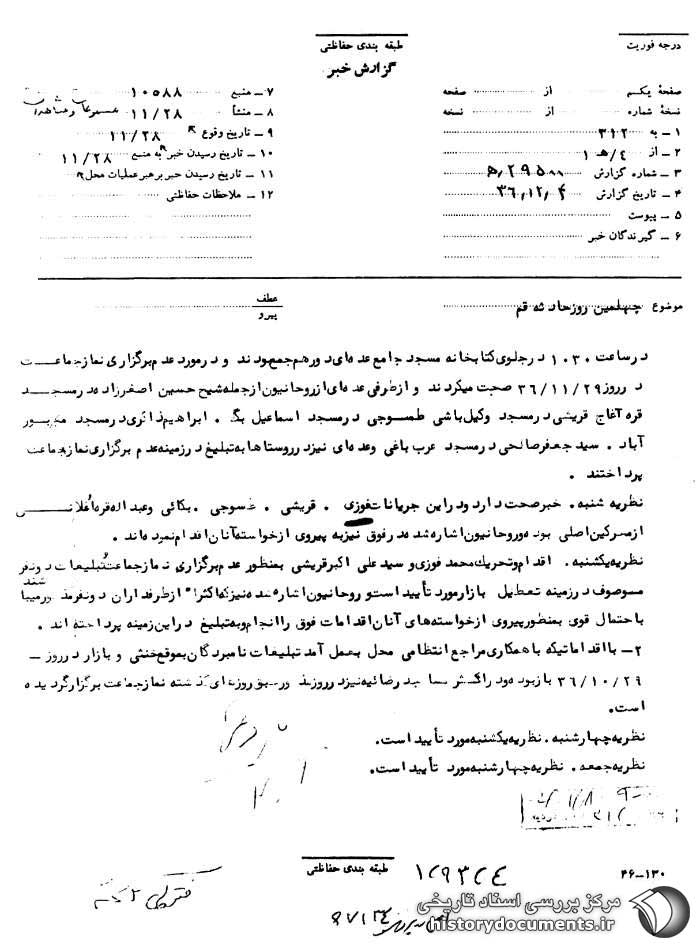 درجه فوریت
طبقه بندی حفاظتی
گزارش خبر
صفحهٔ یکم از صفحه
نسخهٔ شماره از نسخه
۱ ـ به ۳۱۲
۲ ـ از ۴/هـ ۱
۳ ـ شماره گزارش
۴ ـ تاریخ گزارش ۳۶٫۱۲٫۴
۵ ـ پیوست
۶ ـ گیرندگان خبر
۷ ـ منبع ۱۰۵۸۸
۸ ـ منشأ ۱۱/۲۸
۹ ـ تاریخ وقوع ۱۱/۲۸
۱۰ ـ تاریخ رسیدن خبر به منبع ۱۱/۲۸
۱۱ ـ تاریخ رسیدن خبر برهبر عملیات محل
۱۲ ـ ملاحظات حفاظتی
موضوع چهلمین روز حادثه قم
عطف
پیرو
در ساعت ۱۰۳۰ در جلوی کتابخانه مسجد جامع عده‌ای دور هم جمع بودند و در مورد عدم برگزاری نماز جماعت
در روز ۳۶/۱۱/۲۹ صحبت میکردند و از طرفی عده‌ای از روحانیون از جمله شیخ حسین اصغرزاده در مسجد
قره آغاج قریشی در مسجد وکیل باشی طسوجی در مسجد اسماعیل بگ . ابراهیم ذاتری در مسجد
آباد . سید جعفر صالحی در مسجد عرب باغی وعده‌ای نیز در روستاها به تبلیغ در زمینه عدم برگزاری نماز جماعت
پرداختند .
نظریه شنبه . خبر صحت دارد و در این جریانات فوزی . قریشی . طسوجی . بکائی و عبداله قره
از محرکین اصلی بوده و روحانیون اشاره شده در فوق نیز به پیروی از خواسته آنان اقدام نموده‌اند .
نظریه یکشنبه . اقدام و تحریک محمد فوزی و سید علی اکبر قریشی بمنظور عدم برگزاری نماز جماعت و تبلیغات دو نفر
موصوف در زمینه تعطیل بازار مورد تأیید است و روحانیون اشاره شده نیز که اکثراً از طرفداران دو نفر مذکور میباشند
با احتمال قوی بمنظور پیروی از خواسته‌های آنان اقدامات فوق را انجام و به تبلیغ در این زمینه پرداخته اند .
۲ـ با اقداماتیکه با همکاری مراجع انتظامی محل بعمل آمد تبلیغات نامبردگان بموقع خنثی و بازار در روز ـ
۳۶/۱۰/۲۹ باز بوده و در اکثر مساجد رضائیه نیز در روز مذکور بق روزهای گذشته نماز جماعت برگزار گردیده
است.
نظریه چهارشنبه . نظریه یکشنبه مورد تأیید است.
نظریه جمعه . نظریه چهارشنبه مورد تأیید است.
طبقه بندی حفاظتی
۴۶-۱۳۰
مرکز بررسی اسناد تاریخی
historydocuments.ir